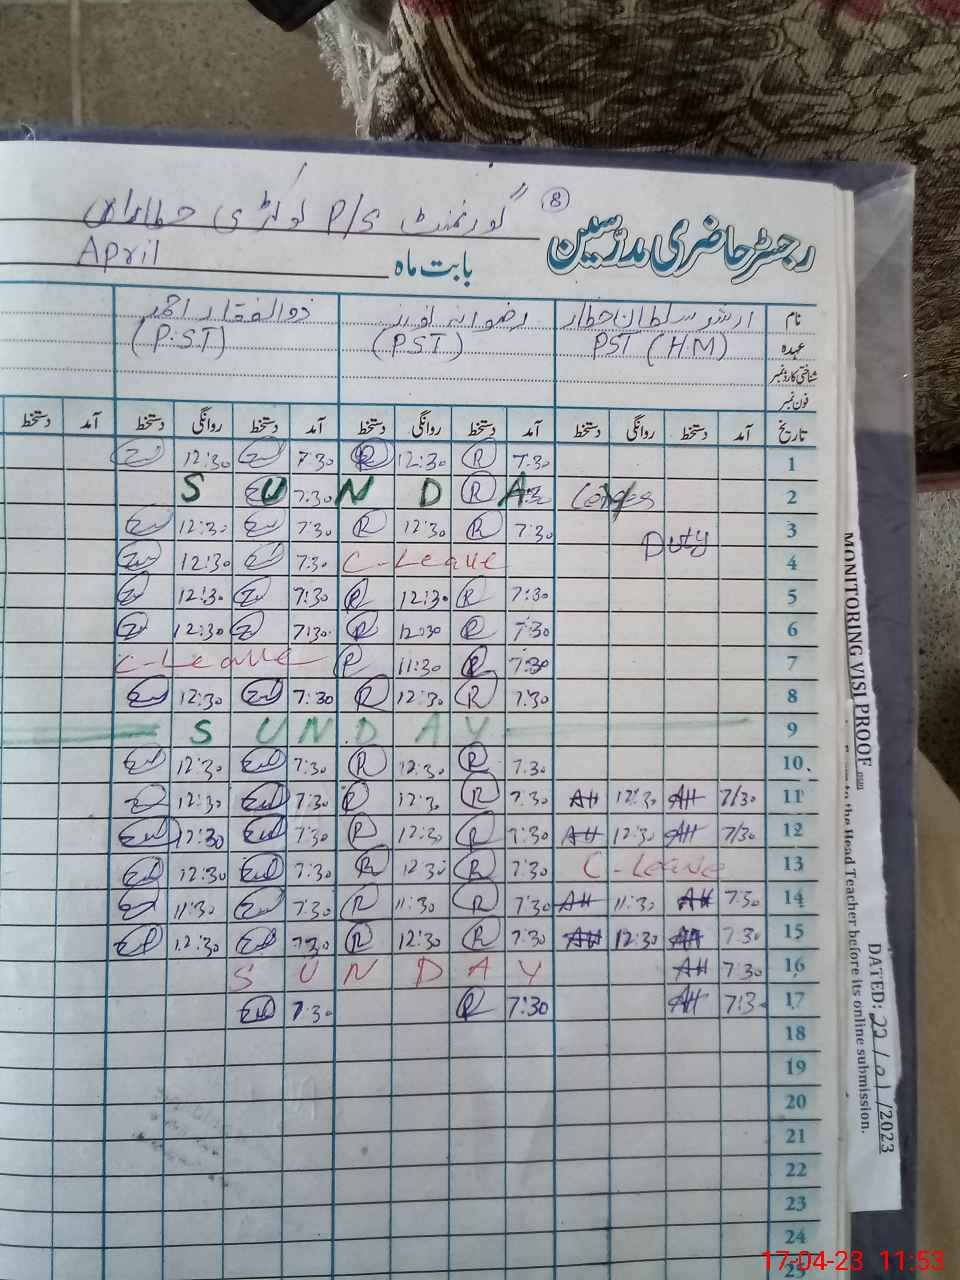 8
گورنمنٹ P/S
رجسٹر حاضری مدرسین
بابت ماہ April
نام ارشد سلطان خطار ذوالفقار احمد
عہدہ PST (H.M) (P.S.T) (P.S.T)
شناختی کارڈ نمبر
فون نمبر
تاریخ آمد دستخط روانگی دستخط آمد دستخط روانگی دستخط آمد دستخط روانگی دستخط آمد دستخط
1 7:30 R 12:30 R 7:30 12:30
2 R 7:30 S U N D A
3 Duty 7:30 R 12:30 R 7:30 12:30
4 C-Leave 7:30 12:30
5 7:30 R 12:30 R 7:30 12:30
6 7:30 R 12:30 R 7:30 12:30
7 7:30 R 11:30 R C-Leave
8 7:30 R 12:30 R 7:30 12:30
9 S U N D A Y
10 7:30 R 12:30 R 7:30 12:30
11 7/30 AH 12:30 AH 7:30 R 12:30 R 7:30 12:30
12 7/30 AH 12:30 AH 7:30 R 12:30 R 7:30 12:30
13 C-Leave 7:30 R 12:30 R 7:30 12:30
14 7:30 AH 11:30 AH 7:30 R 11:30 R 7:30 11:30
15 7:30 AH 12:30 AH 7:30 R 12:30 R 7:30 12:30
16 7:30 AH S U N D A Y
17 7:30 AH 7:30 R 7:30
18
19
20
21
22
23
24
25
MONITORING VISI PROOF
to the Head Teacher before its online submission.
DATED: 22/01/2023
17-04-23 11:53